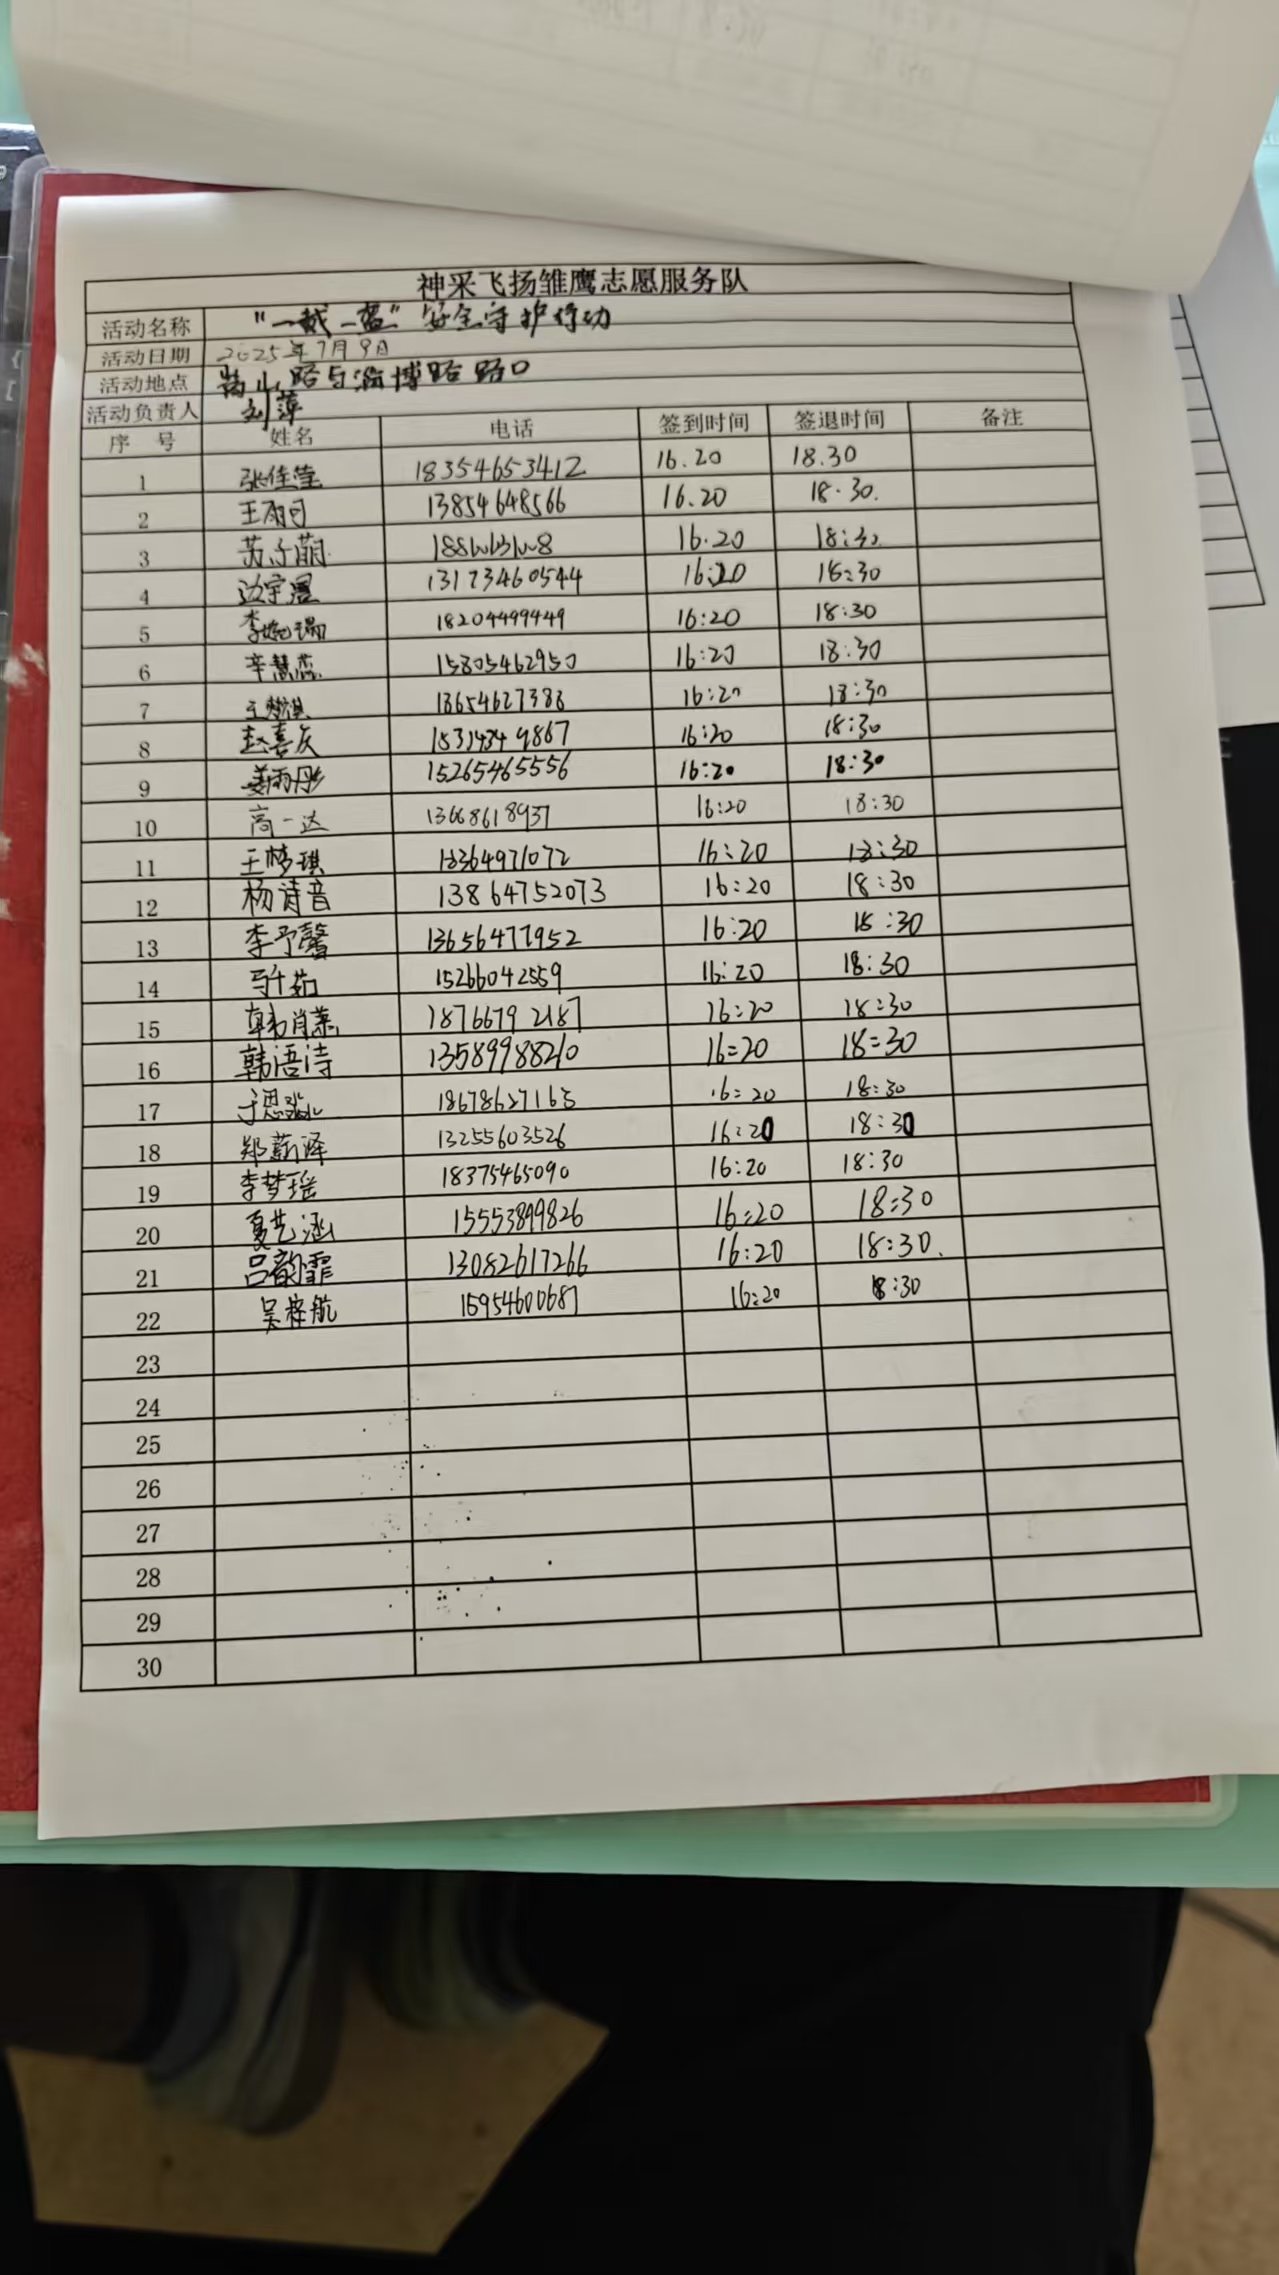 神采飞扬雏鹰志愿服务队
活动名称 "一戴一盔"安全守护行动
活动日期 2025年7月9日
活动地点 嵩山路与淄博路路口
活动负责人 刘萍
序 号 姓名 电话 签到时间 签退时间 备注
1 张佳莹 18354653412 16.20 18.30
2 王雨同 13854648566 16.20 18.30.
3 苏子萌 16.20 18:30
4 边宇恩 13173460544 16:20 18:30
5 李婉瑞 18204499449 16:20 18:30
6 辛慧蕊 15805462950 16:20 18:30
7 王梦祺 18654627388 16:20 18:30
8 赵喜庆 16:20 18:30
9 姜雨彤 15265465556 16:20 18:30
10 高一达 13668618937 16:20 18:30
11 王梦琪 18364971072 16:20 18:30
12 杨诗音 13864752073 16:20 18:30
13 李予馨 13656477952 16:20 18:30
14 马千茹 15266042559 16:20 18:30
15 韩肖萧 18766792187 16:20 18:30
16 韩语诗 13589988210 16:20 18:30
17 于恩淼 18678627163 16:20 18:30
18 郑蔚泽 13255603526 16:20 18:30
19 李梦瑶 18375465090 16:20 18:30
20 夏艺涵 15553899826 16:20 18:30
21 吕韵霏 13082617266 16:20 18:30.
22 吴梓航 15954600687 16:20 18:30
23
24
25
26
27
28
29
30